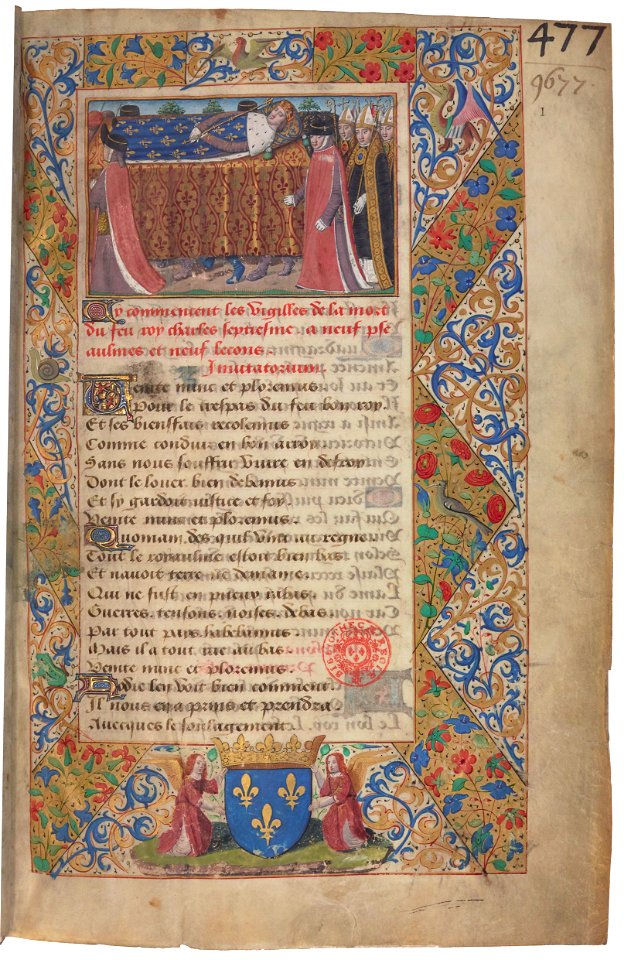 477
9677.
1
Cy commencent les vigilles de la mort
du feu roy charles septiesme a neuf pse
aulmes et neuf lecons
Inuitatorium
Venite nunc et ploremus
Pour le trespas du feu bon roy
Et ses biensffais recolemus
Comme conduit en bon arroy
Sans nous souffrir viure en desroy
Dont le louer bien debemus
Et sy gardoit iustice et foy
Venite nunc et ploremus.
Quoniam des quil vint au regne
Tout le royaulme estoit bien bas
Et nauoit terre ne demaine
Qui ne fust en piteux
Guerres tensons noises debas
Par tout pays habebamus
Mais il a tout mis au bas
Venite nunc et ploremus
Hodie len voit bien comment
Il nous en a prins et prendra
Auecques le soulagement
BIBLIOTHECAE REGIAE